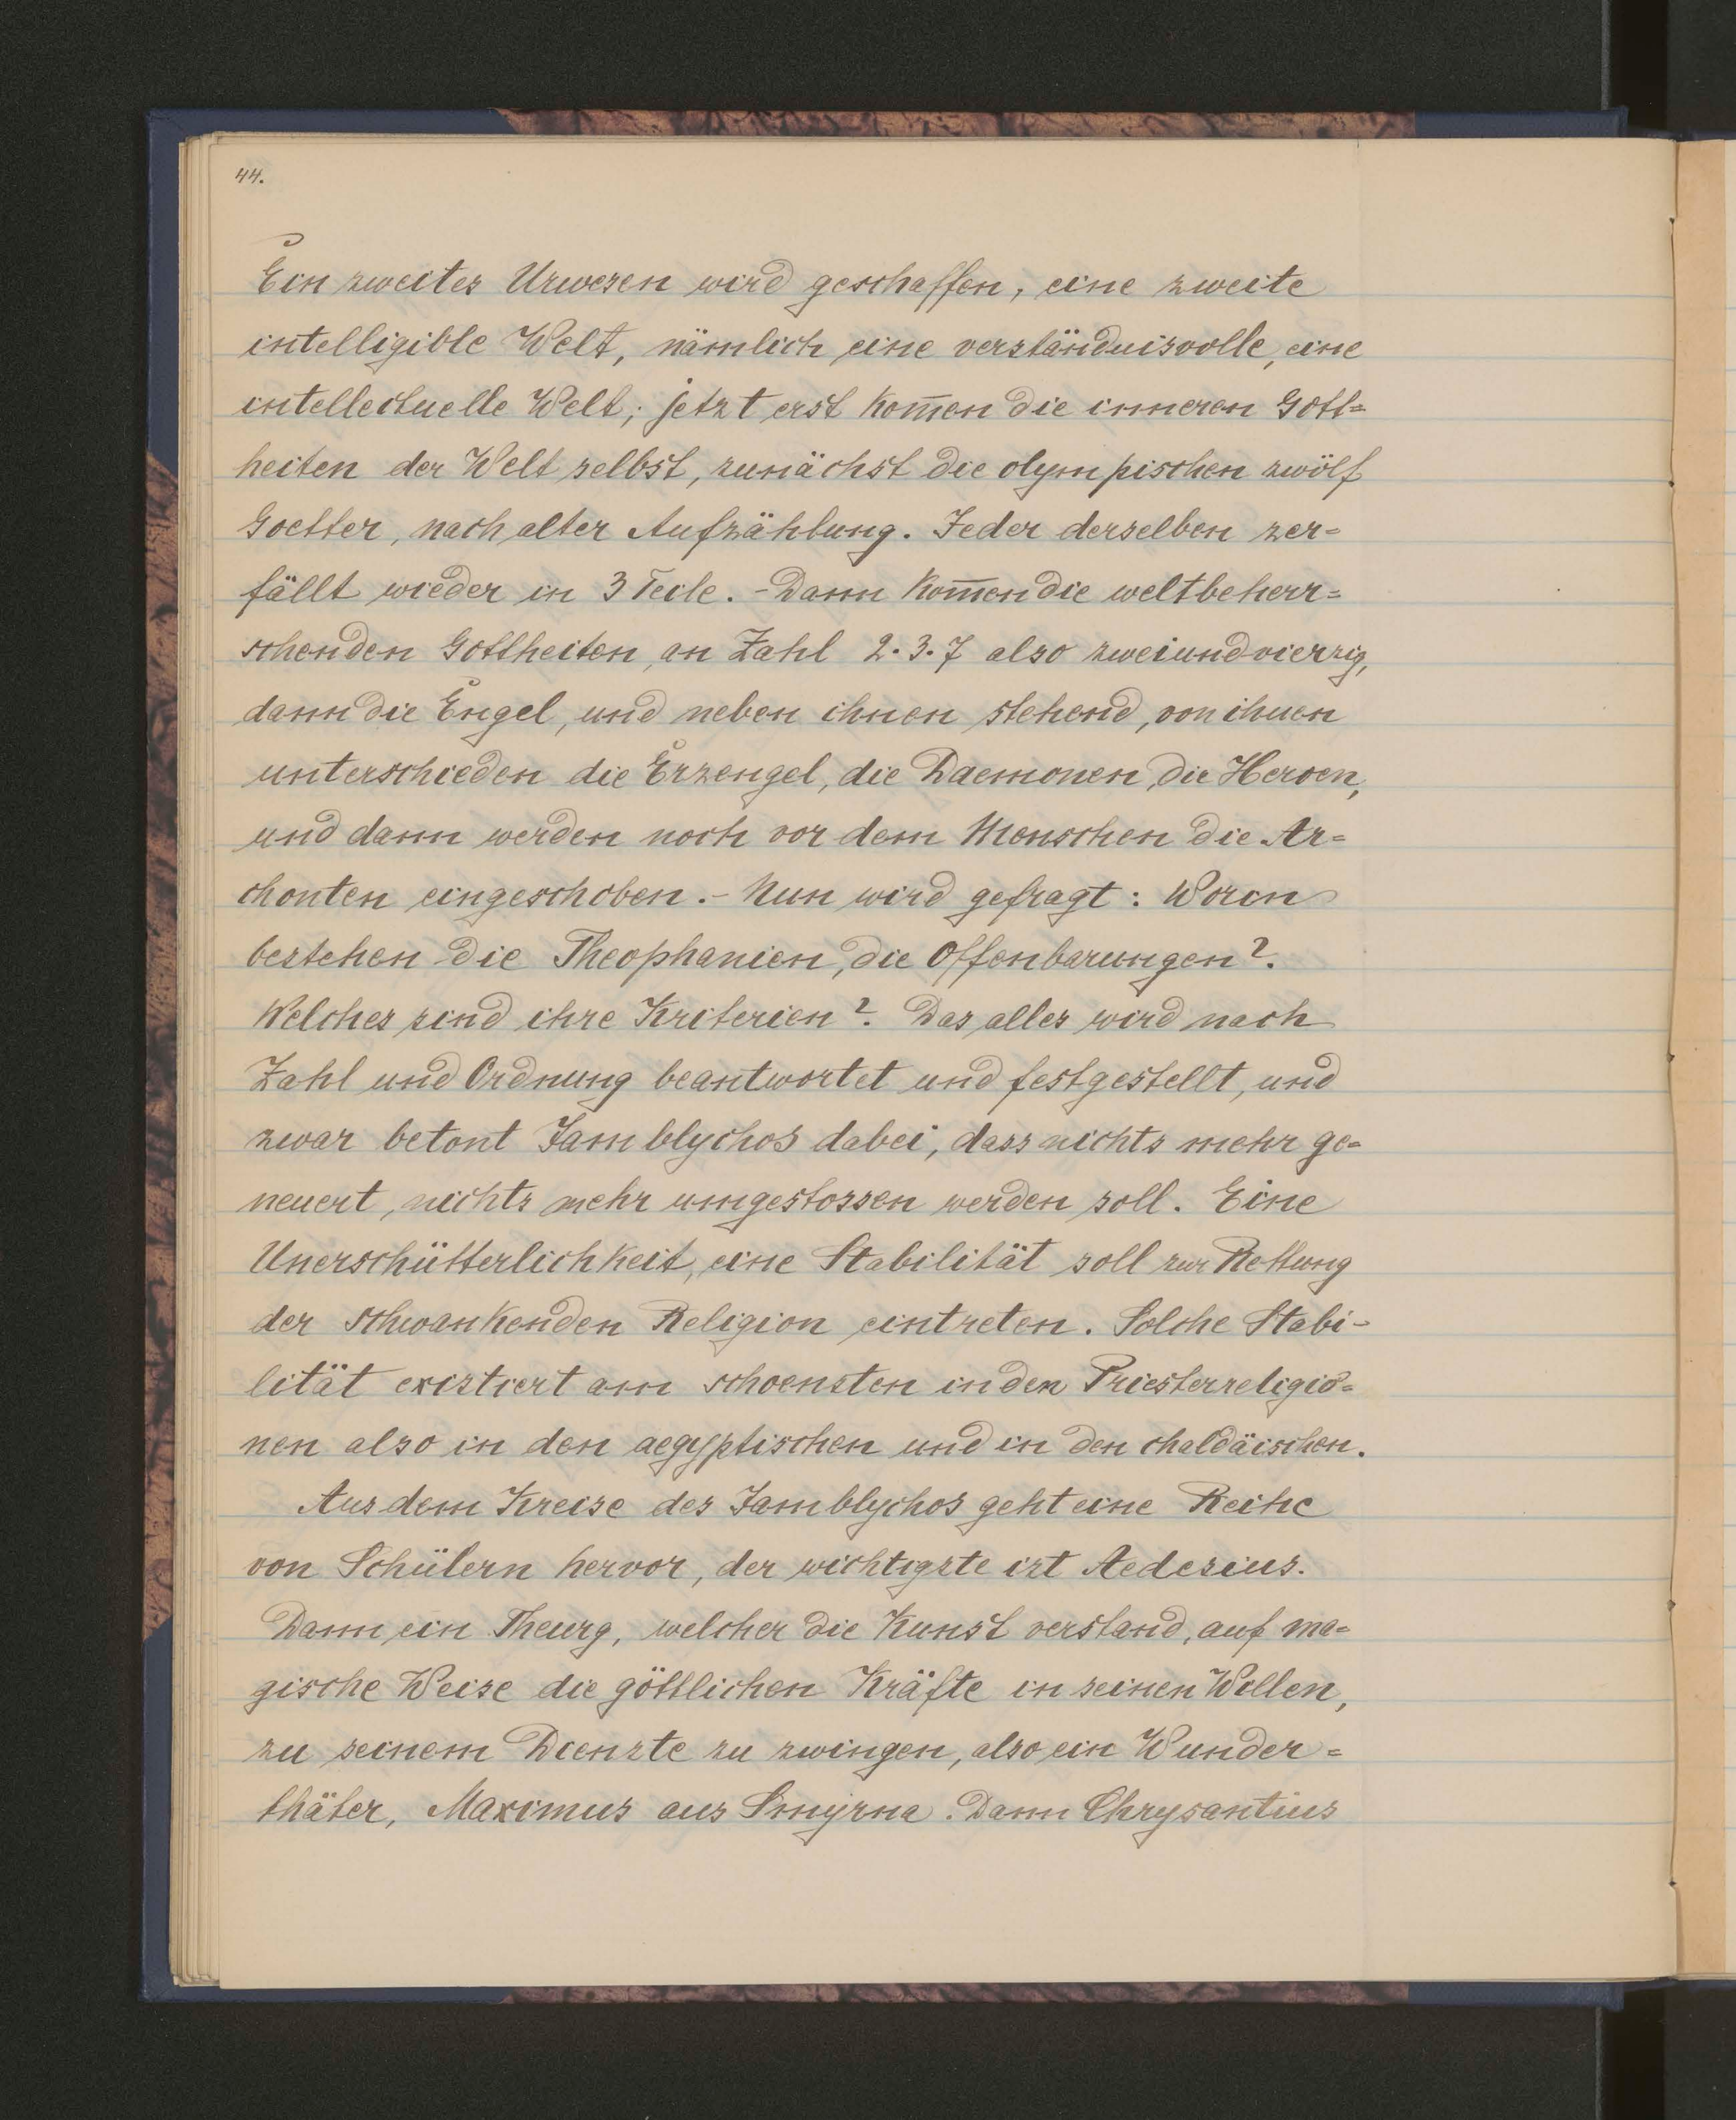 44.
Ein zweites Urwesen wird geschaffen, eine zweite
intelligible Welt, nämlich eine verständnisvolle, eine
intellectuelle Welt; jetzt erst kom̅en die inneren Gott=
heiten der Welt selbst, zunächst die olympischen zwölf
Goetter, nach alter Aufzählung. Jeder derselben zer=
fällt wieder in 3 Teile. - Dann kom̅en die weltbeherr=
schenden Gottheiten, an Zahl 2.3.7 also zweiundvierzig,
dann die Engel, und neben ihnen stehend, von ihnen
unterschieden die Erzengel, die Daemonen, die Heroen,
und dann werden noch vor dem Menschen die Ar=
chonten eingeschoben. - Nun wird gefragt: Worin
bestehen die Theophanien, die Offenbarungen?.
Welches sind ihre Kriterien?. Das alles wird nach
Zahl und Ordnung beantwortet und festgestellt, und
zwar betont Jamblychos dabei, dass nichts mehr ge=
neuert, nichts mehr umgestossen werden soll. Eine
Unerschütterlichkeit, eine Stabilität soll zur Rettung
der schwankenden Religion eintreten. Solche Stabi-
lität existiert am schoensten in den Priesterreligio=
nen also in den aegyptischen und in den chaldäischen.
Aus dem Kreise des Jamblychos geht eine Reihe
von Schülern hervor, der wichtigste ist Aedesius.
Dann ein Theurg, welcher die Kunst verstand, auf ma=
gische Weise die göttlichen Kräfte in seinen Willen,
zu seinem Dienste zu zwingen, also ein Wunder=
thäter, Maximus aus Smyrna. Dann Chrysantius